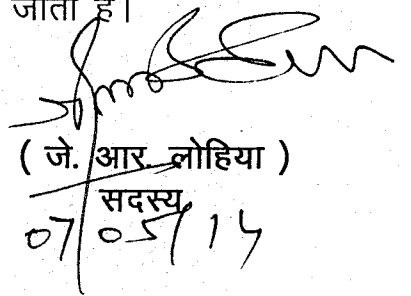 जाता है।
( जे. आर. लोहिया )
सदस्य
07/05/14